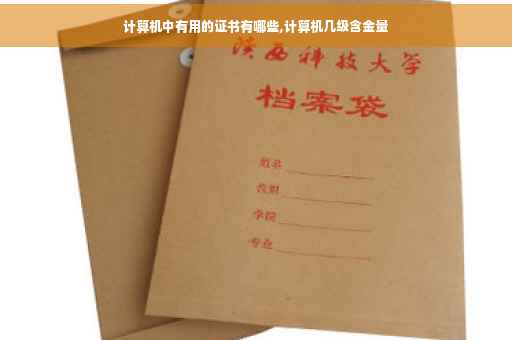 计算机中有用的证书有哪些,计算机几级含金量
陕西科技大学
档案袋
学院
专业